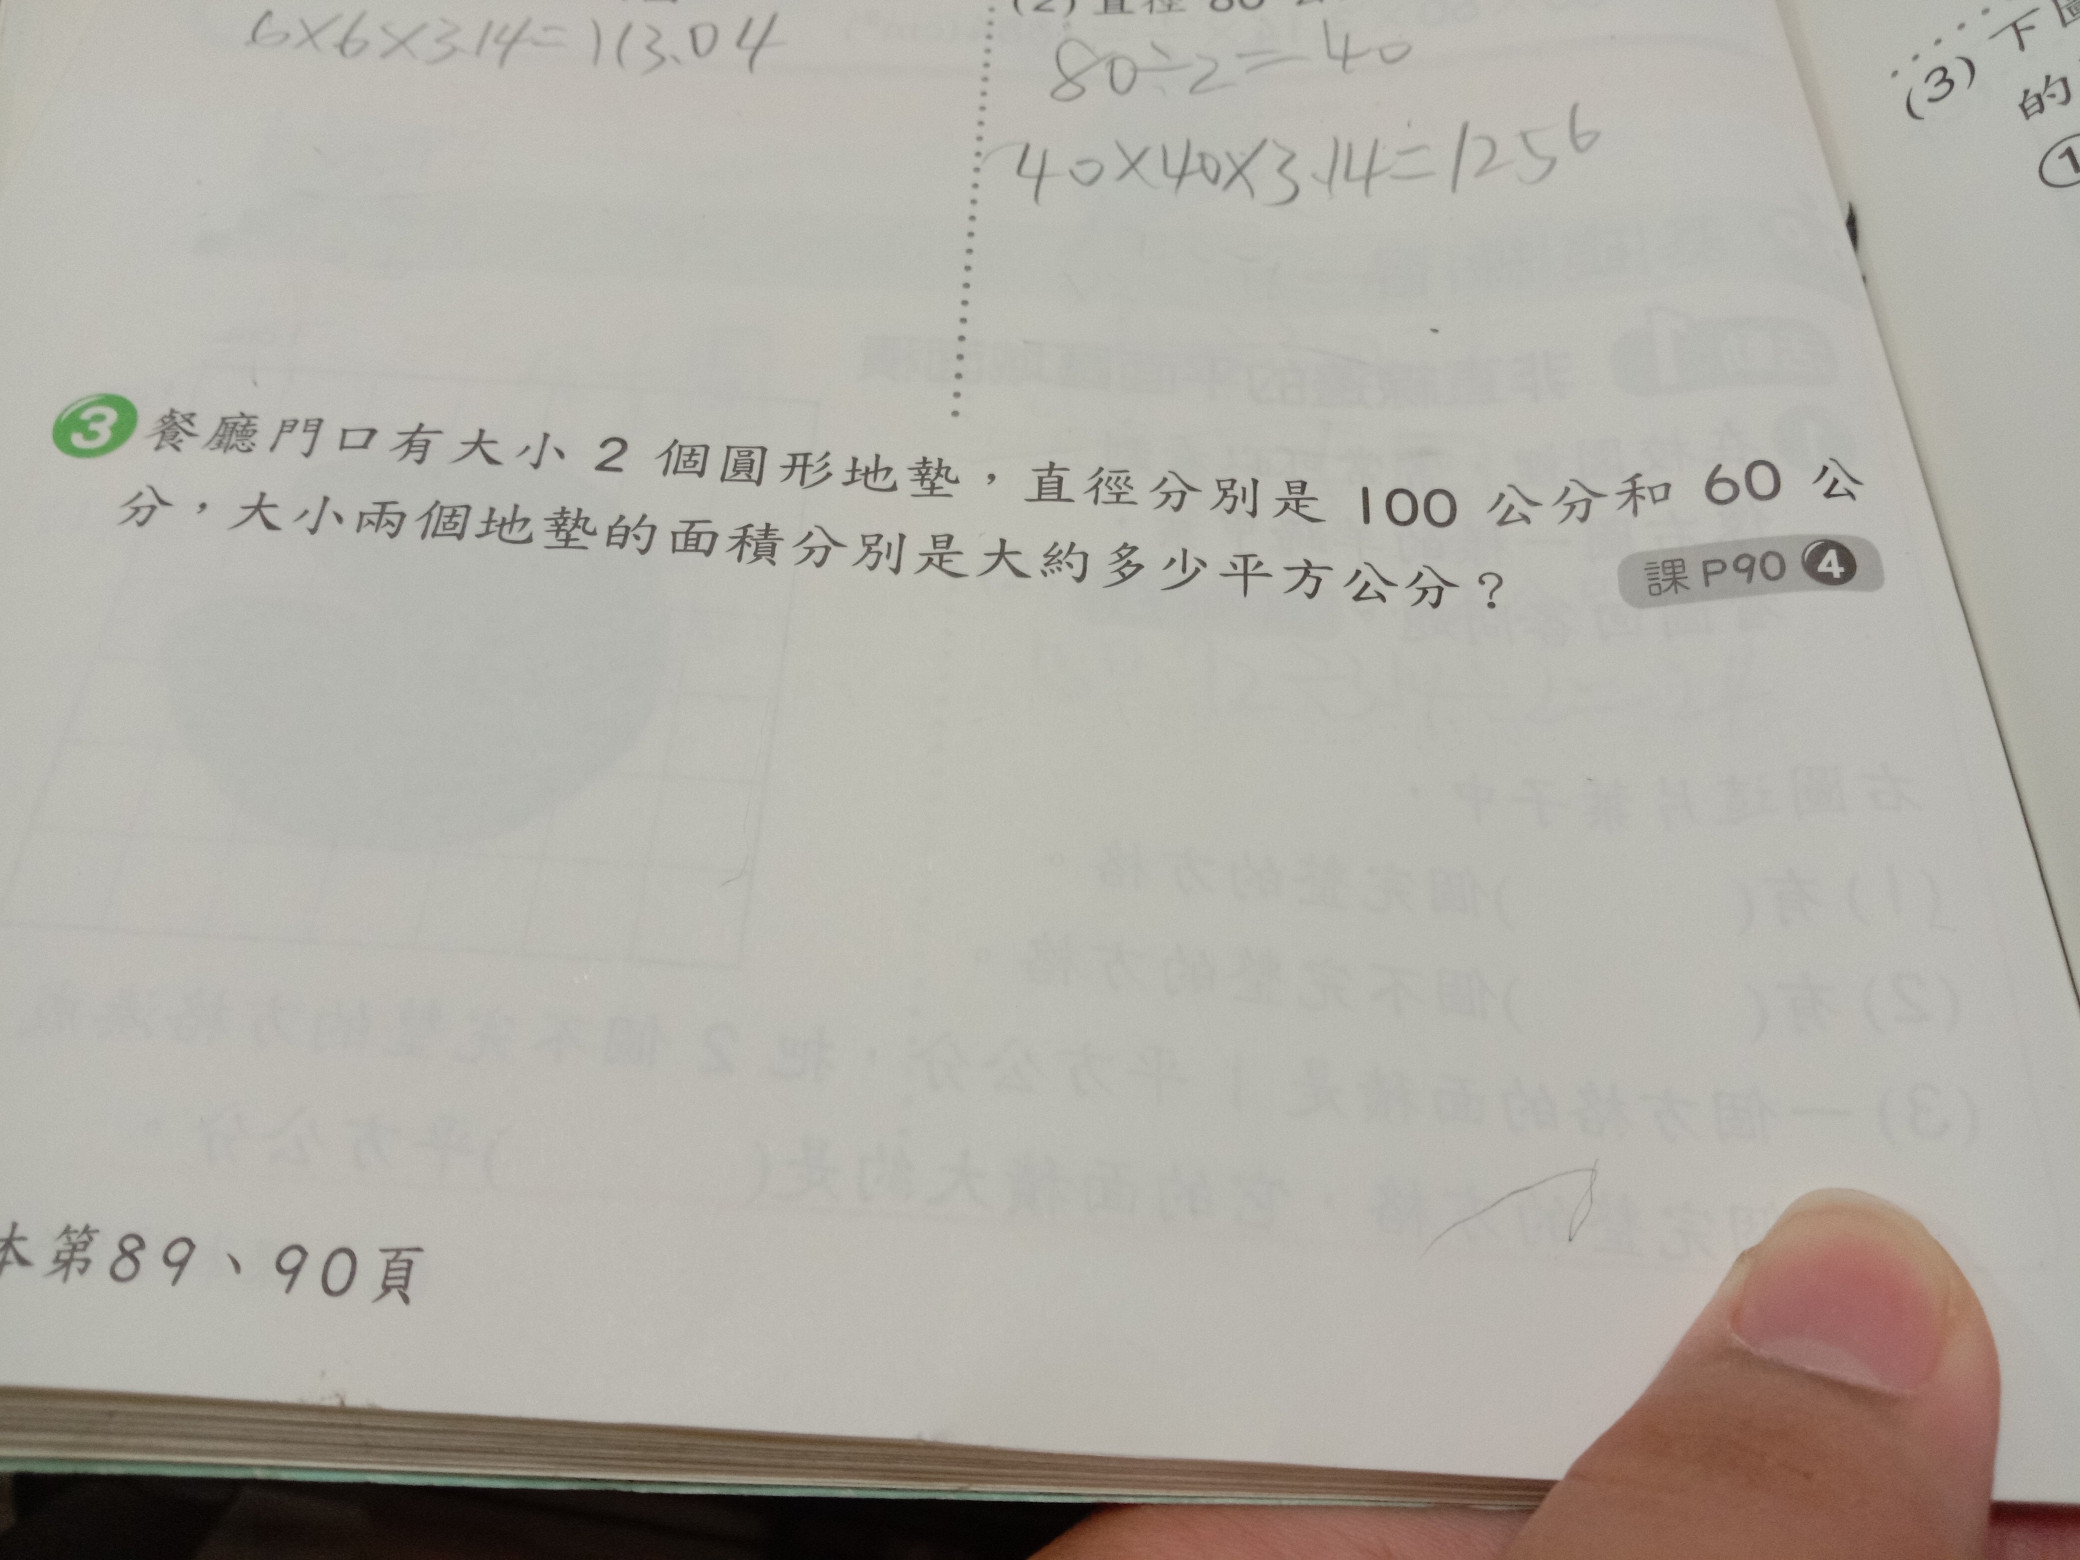 6×6×3.14=113.04
(2) 直徑 80
80÷2=40
40×40×3.14=1256
3 餐廳門口有大小 2 個圓形地墊，直徑分別是 100 公分和 60 公
分，大小兩個地墊的面積分別是大約多少平方公分？
課 P90 4
本第89、90頁
(3) 下圖
的
1